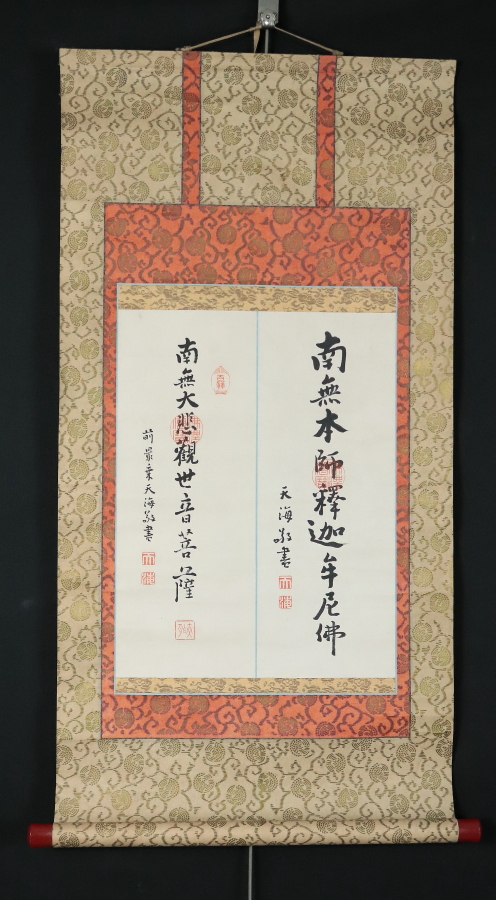 南無本師釋迦牟尼佛
天海敬書
南無大悲觀世音菩薩
前總乗天海敬書